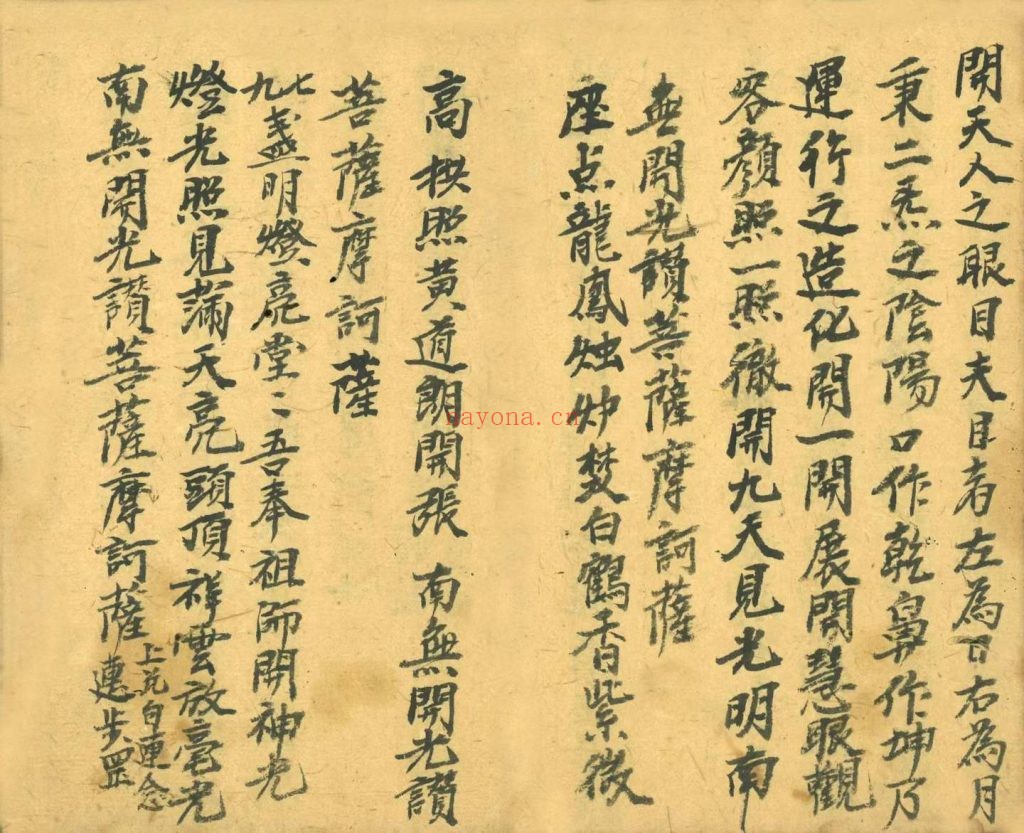 開天人之眼目夫目者左為日右為月
秉二炁之陰陽口作乾鼻作坤乃
運行之造化開一開展開慧眼觀
容顏照一照徹開九天見光明南
無開光讚菩薩摩訶薩
座点龍鳳烛炉焚白鶴香紫微
高拱照黄道朗開張 南無開光讚
菩薩摩訶薩
九七盞明燈亮堂〻吾奉祖師開神光
燈光照見滿天亮頭頂祥雲放毫光
南無開光讃菩薩摩訶薩
上 白 念
步罡
nayona.cn